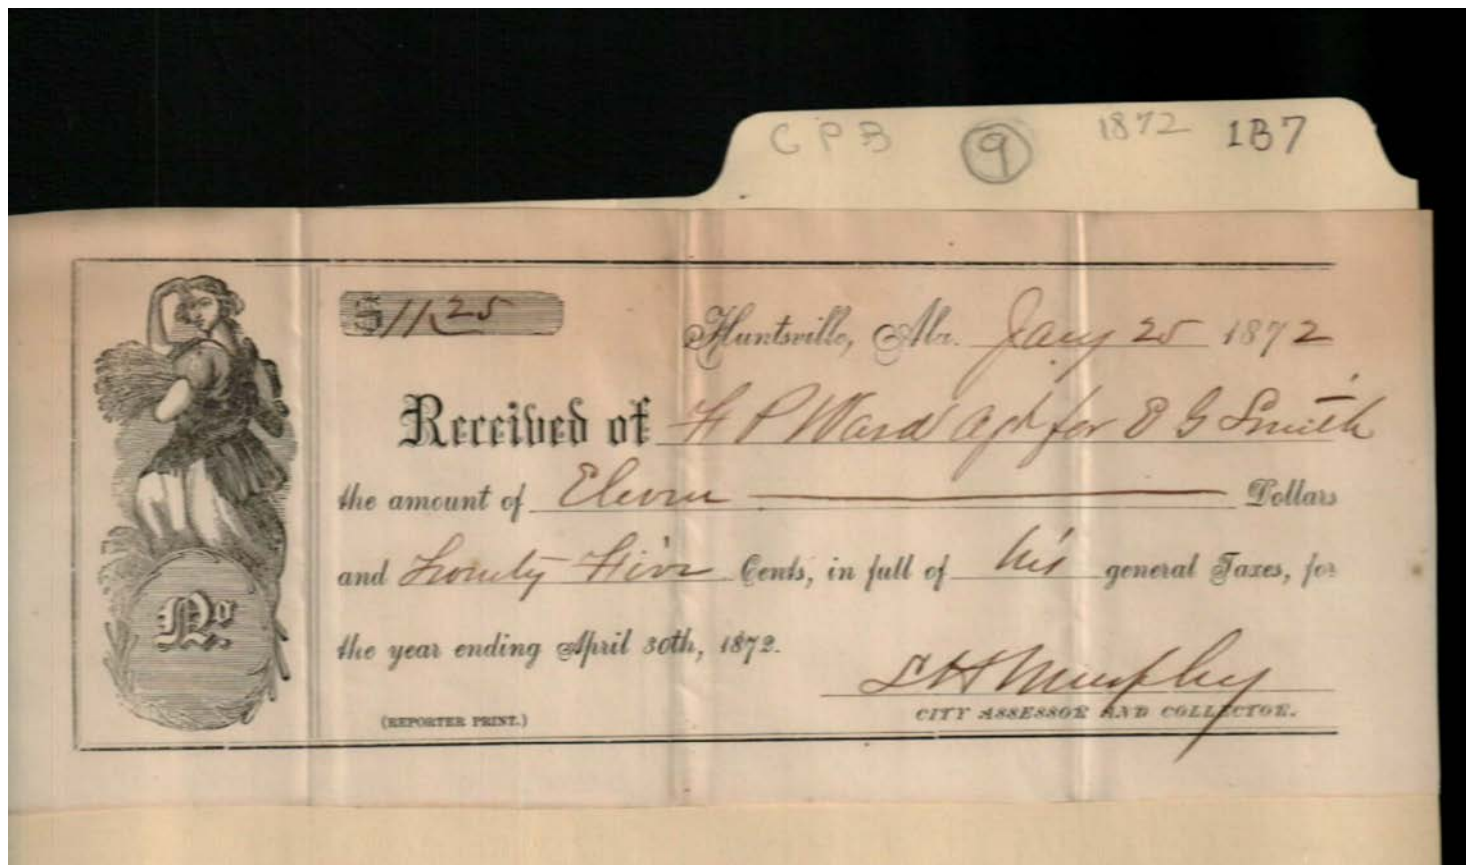 CPB 9 1872 1B7
$11.25
Huntsville, Ala. Jany 25 1872
Received of H P Ward agt for E G Smith
the amount of Eleven Dollars
and Twenty Five Cents, in full of his general Taxes, for
the year ending April 30th, 1872.
Murphy
(REPORTER PRINT.)
CITY ASSESSOR AND COLLECTOR.
No.